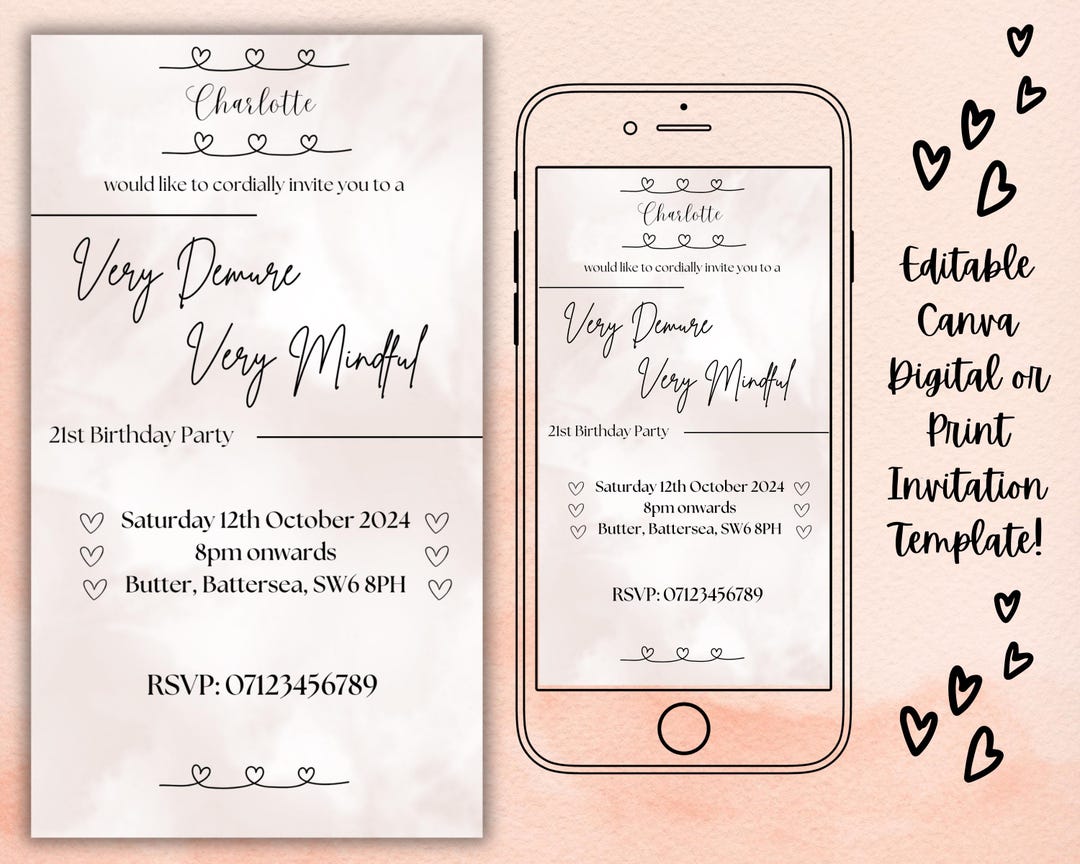 Charlotte
would like to cordially invite you to a
Very Demure
Very Mindful
21st Birthday Party
Saturday 12th October 2024
8pm onwards
Butter, Battersea, SW6 8PH
RSVP: 07123456789
Charlotte
would like to cordially invite you to a
Very Demure
Very Mindful
21st Birthday Party
Saturday 12th October 2024
8pm onwards
Butter, Battersea, SW6 8PH
RSVP: 07123456789
Editable
Canva
Digital or
Print
Invitation
Template!